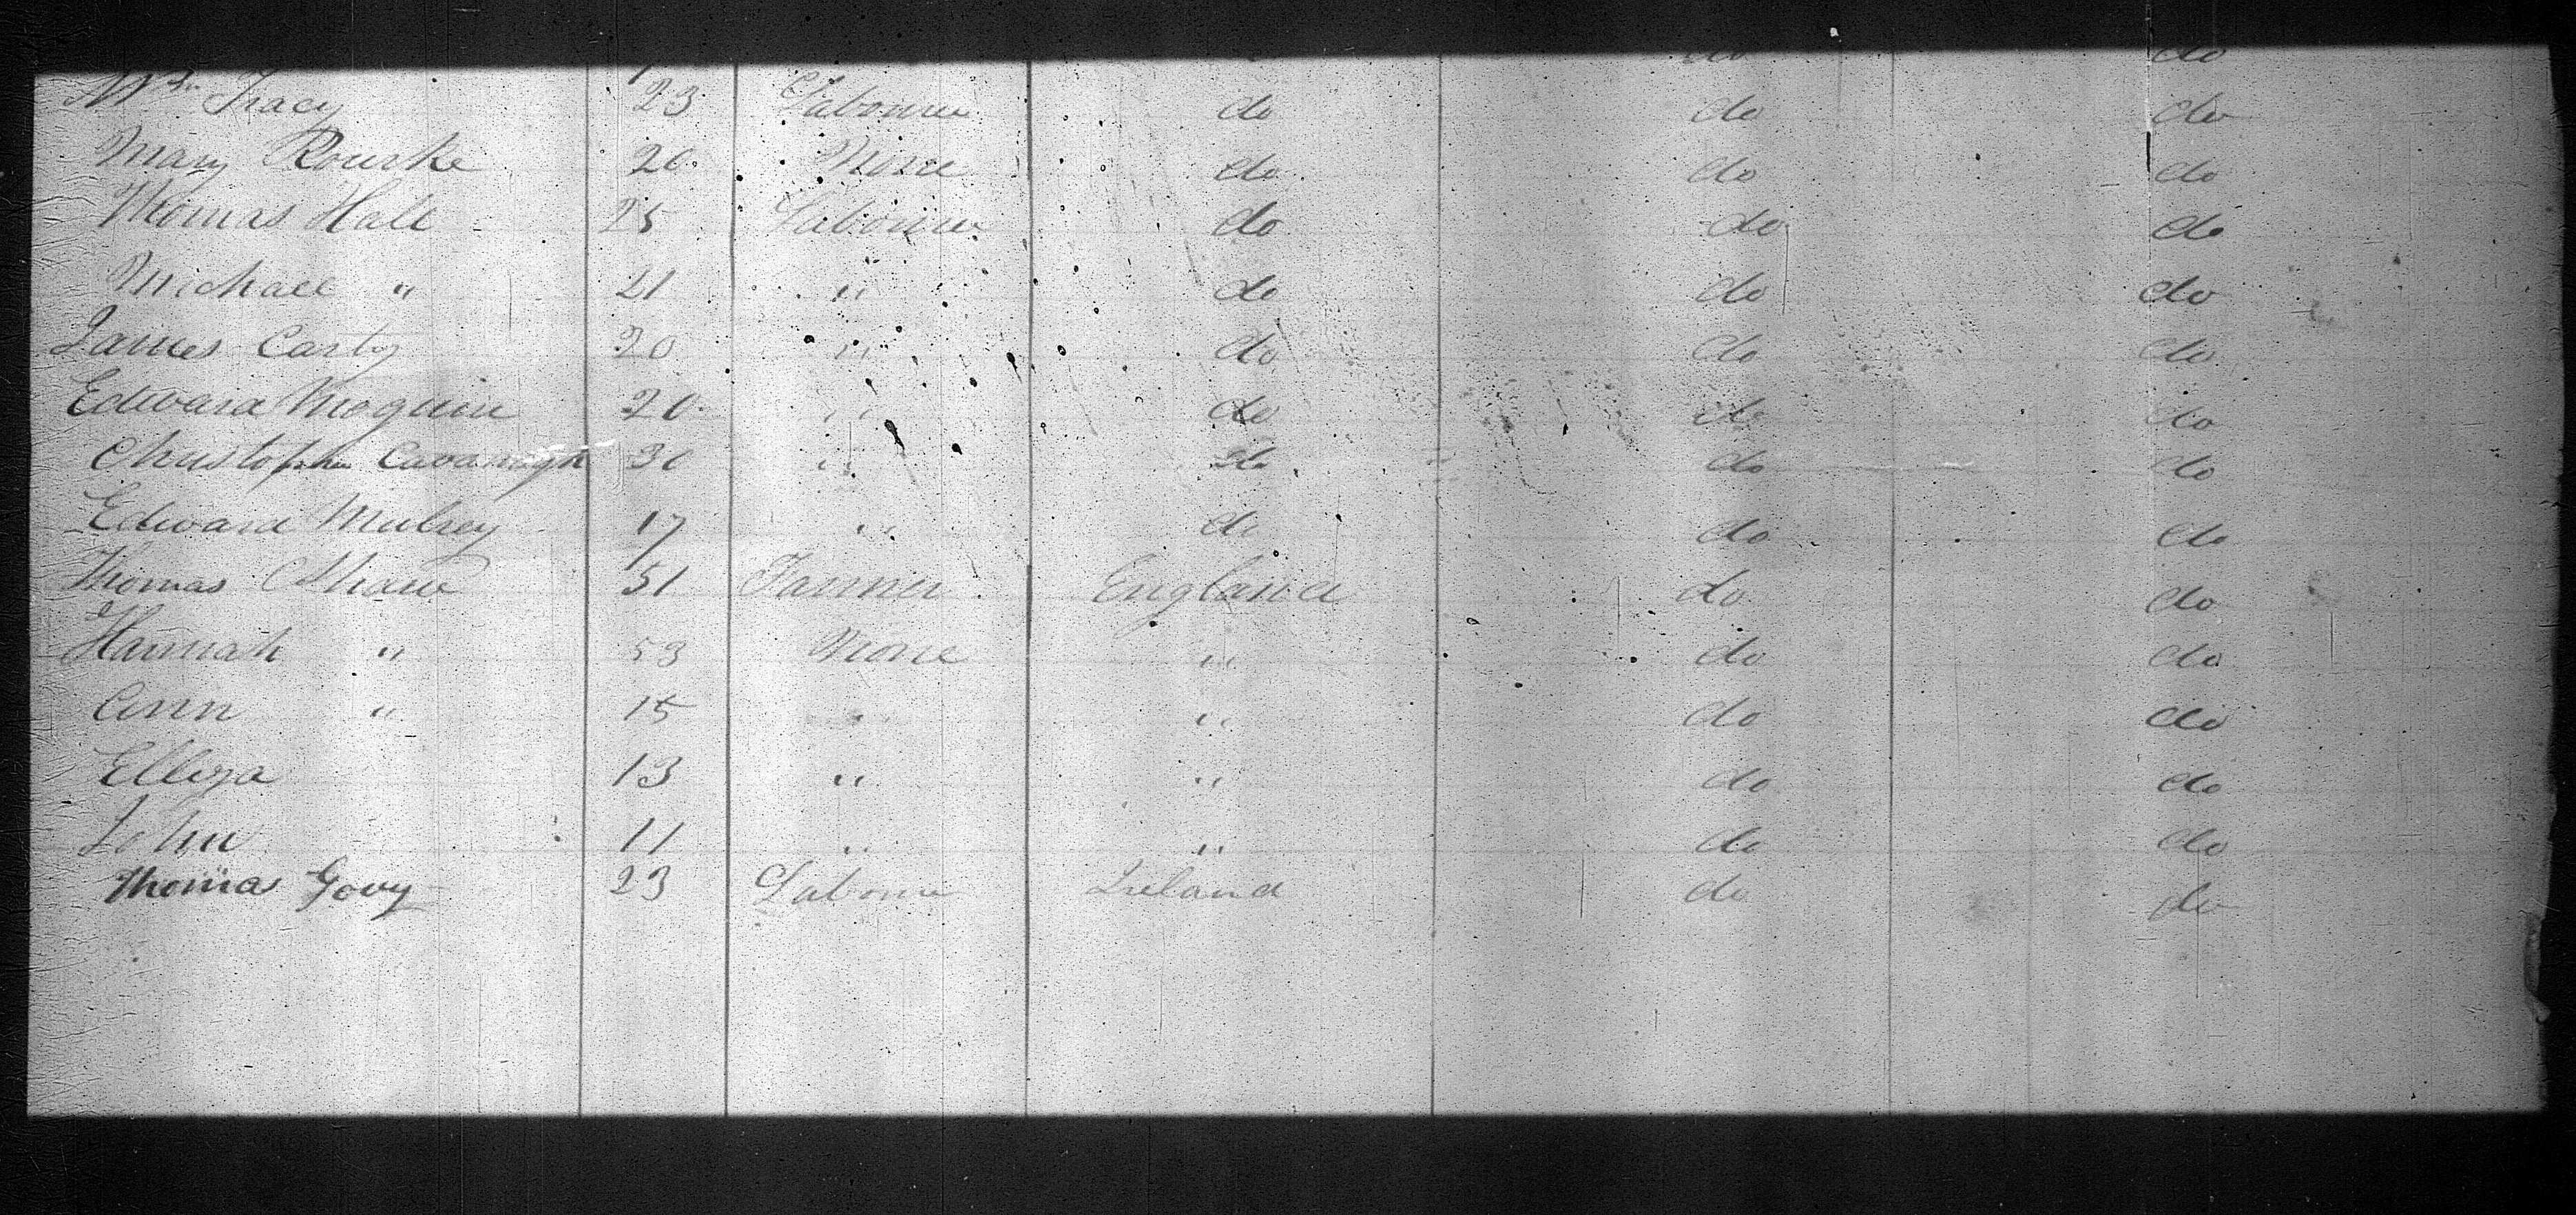 do do
Wm Tracy 23 Labourer do do do
Mary Rourke 20 None do do do
Thomas Hall 25 Labourer do do do
Michael " 21 " do do do
James Carty 20 " do do do
Edward Meguin 20 " do do do
Christopher Cavanagh 30 " do do do
Edward Mulrey 17 " do do do
Thomas Shaw 51 Farmer England do do
Hannah " 53 None " do do
Ann " 15 " " do do
Elliza 13 " " do do
John 11 " " do do
Thomas 23 Labourer Ireland do do